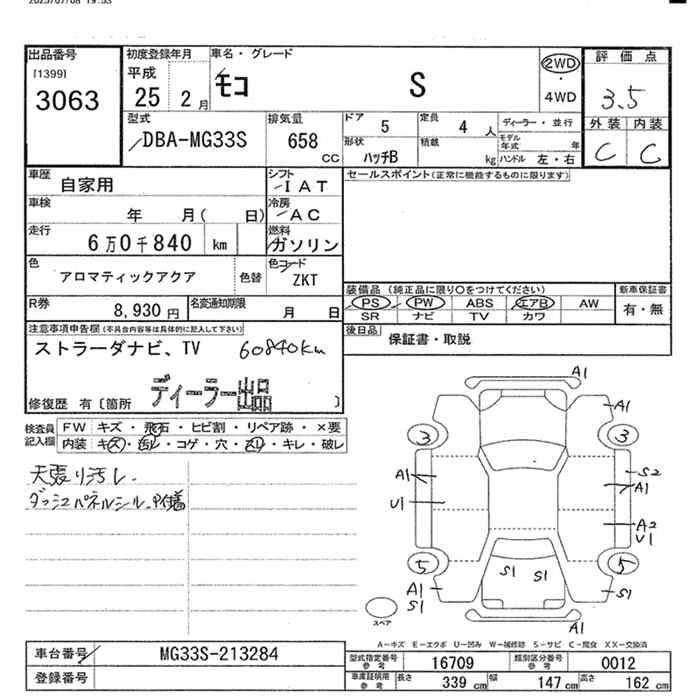 2025/07/08 19:53
出品番号 初度登録年月 車名・グレード 2WD 評価点
[1399] 平成 ・ 3.5
3063 25 2月 モコ S 4WD
型式 排気量 ドア 5 定員 4人 ディーラー・並行 外装 内装
DBA-MG33S 658 CC 形状 ハッチB 積載 kg モデル年式 年 C C
ハンドル 左・右
車歴 自家用 シフト IAT セールスポイント(正常に機能するものに限ります)
車検 年 月( 日) 冷房 AC
走行 6万0千840 km 燃料 ガソリン
色 アロマティックアクア 色替 色コード ZKT
装備品 (純正品に限り○をつけてください) 新車保証書
PS PW ABS エアB AW 有・無
SR ナビ TV カワ
R券 8,930円 名変通知期限 月 日
後日品 保証書・取説
注意事項申告欄(不具合内容等は具体的に記入して下さい)
ストラーダナビ、TV 60840km
修復歴 有〔箇所 ディーラー出品 〕
検査員記入欄 FW キズ・飛石・ヒビ割・リペア跡・×要
内装 キズ・汚レ・コゲ・穴・スレ・キレ・破レ
天張り汚レ.
ダッシュパネルシル.
A1
A1
3 3
A1 S2
A1
U1 A2
U1
5 5
S1 S1
A1 S1
S1
スペア A1
A-キズ E-エクボ U-凹み W-補修跡 S-サビ C-腐食 XX-交換済
車台番号 MG33S-213284
登録番号
型式指定番号 参考 16709 類別区分番号 参考 0012
車庫証明用 参考 長さ 339 cm 幅 147 cm 高さ 162 cm